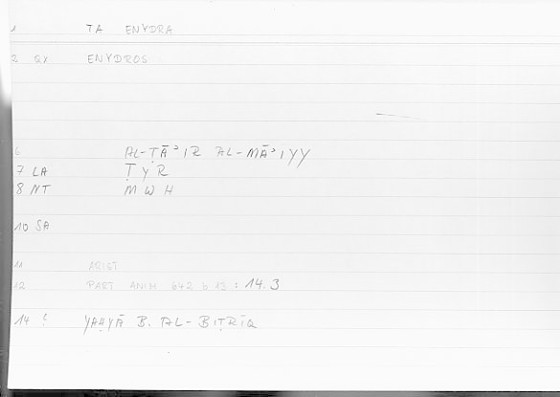 1 TA ENYDRA
QX ENYDROS
6 AL-ṬĀʾIR AL-MĀʾIYY
7 LA ṬYR
8 NT MWH
10 SA
11 ARIST
12 PART ANIM 642 b 13 : 14.3
14 YAḤYĀ B. AL-BIṬRĪQ